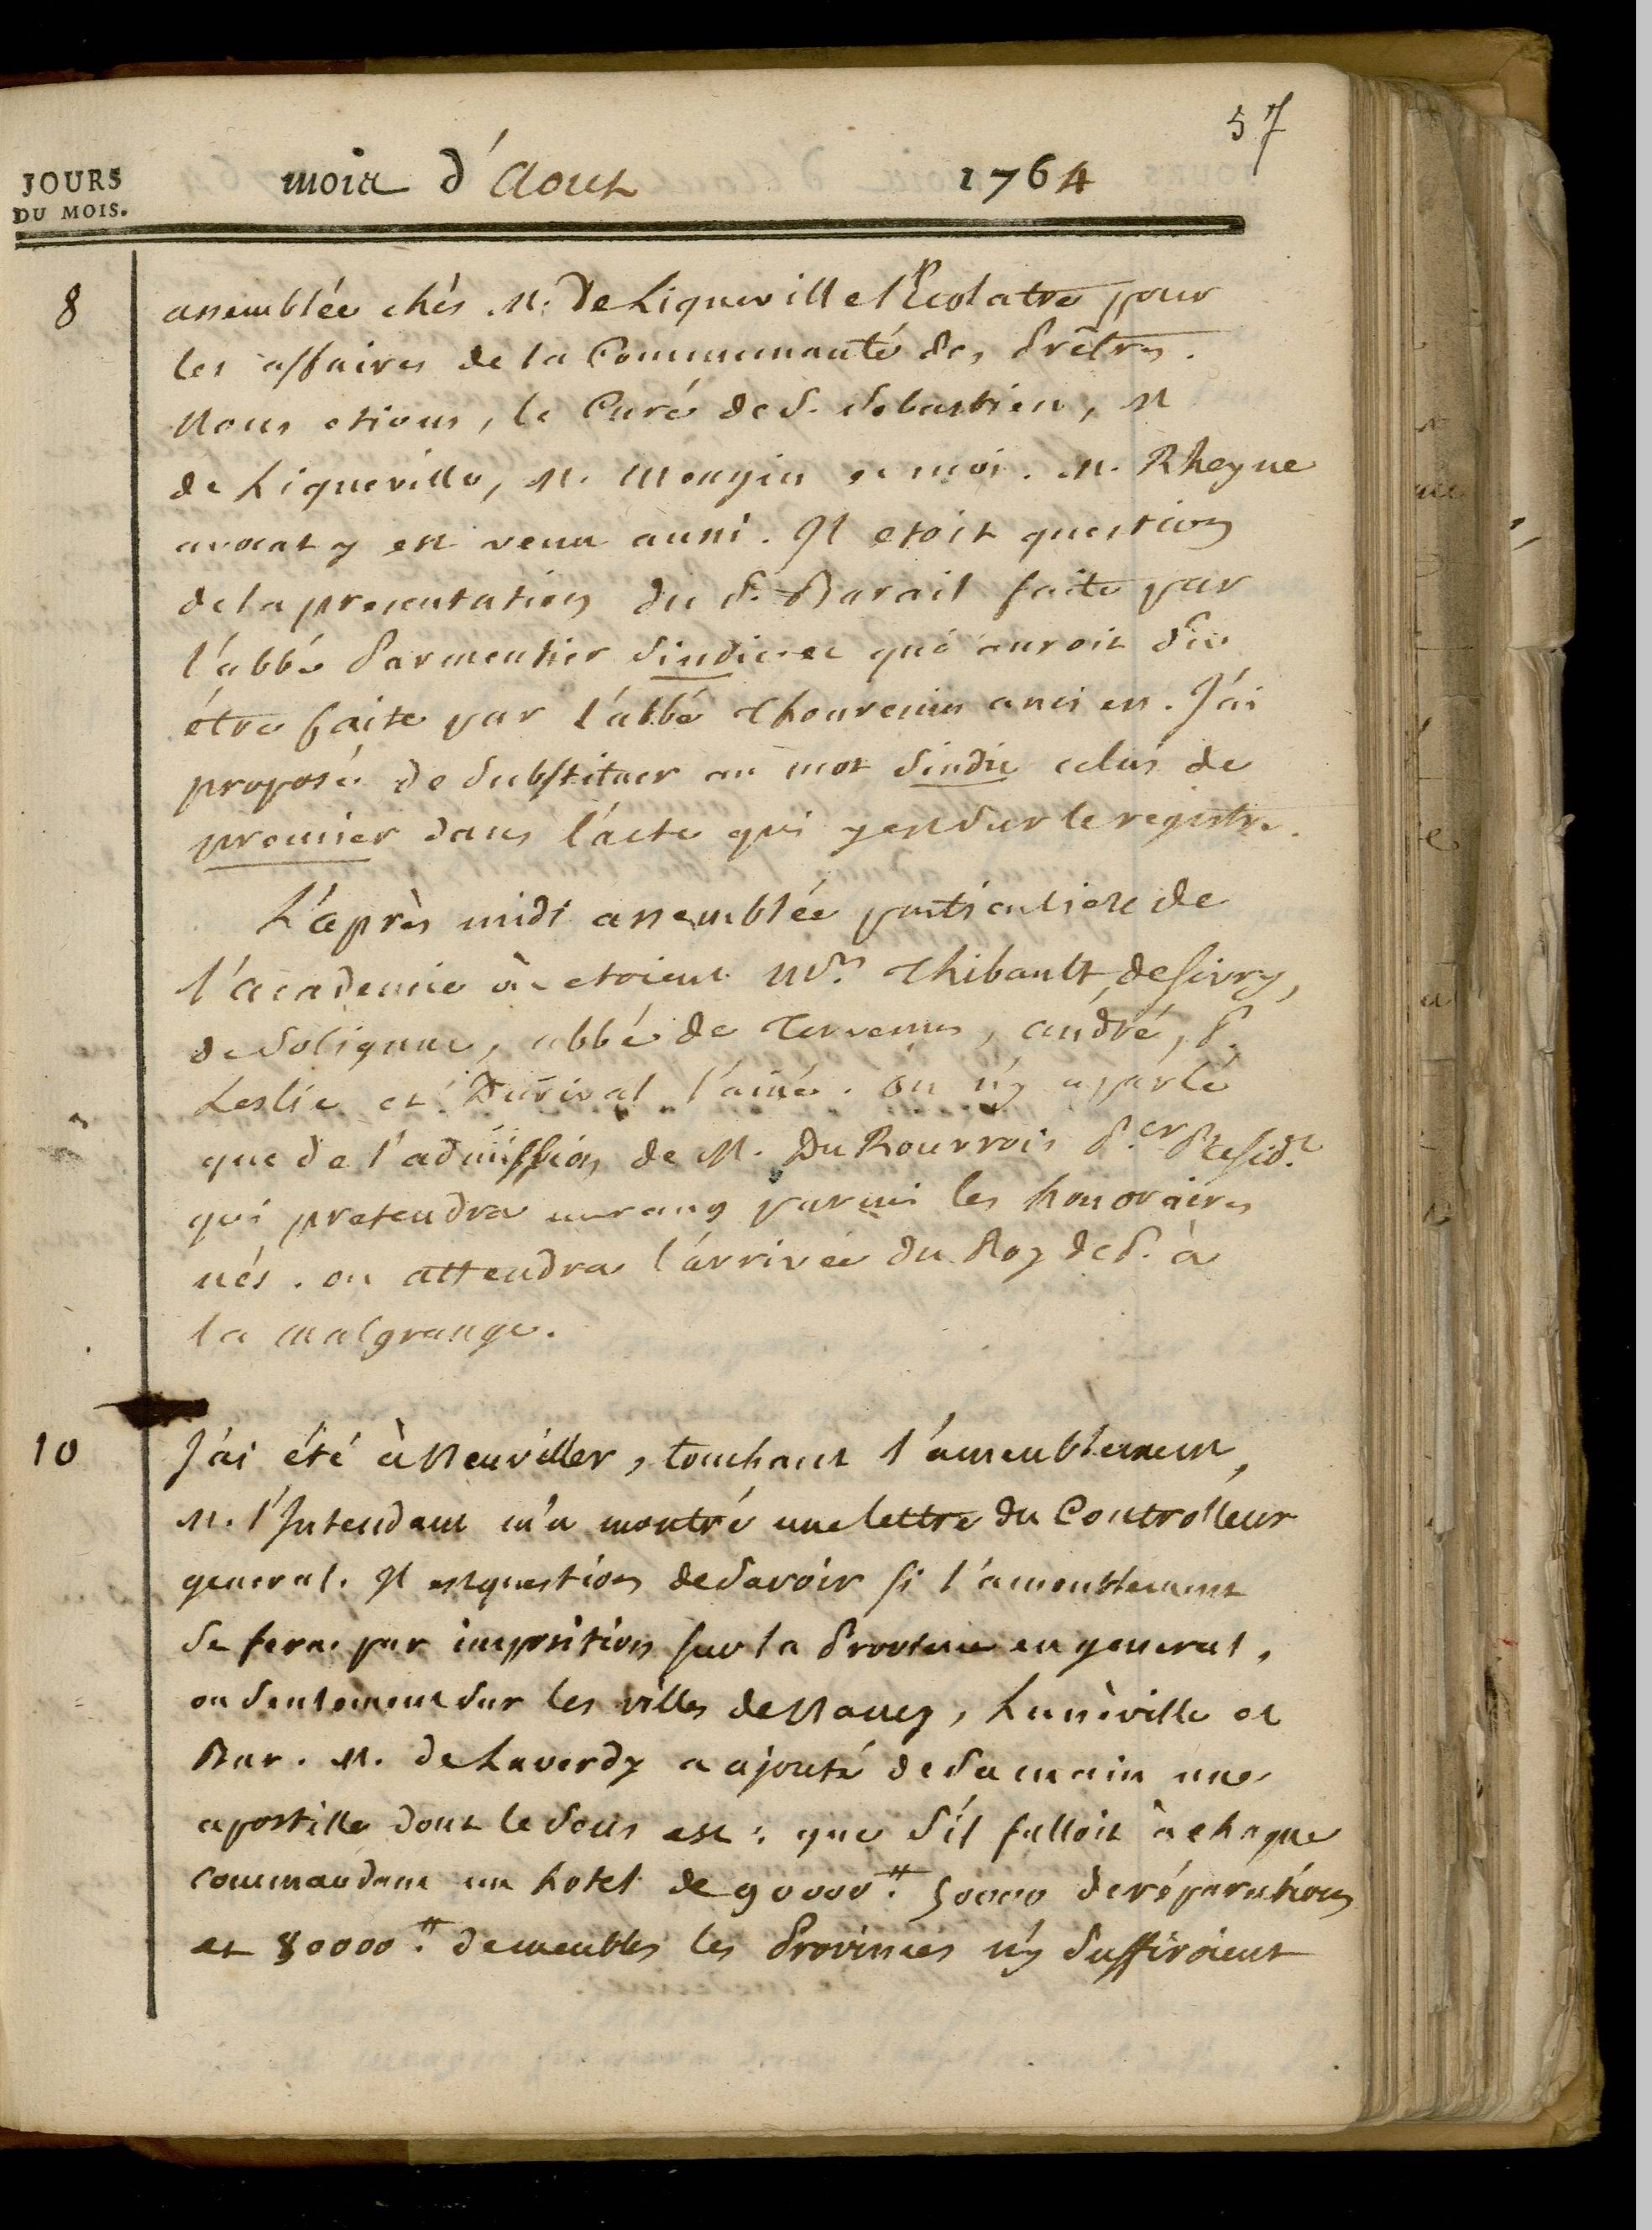 57
JOURS
DU MOIS.
mois d'Aout 1764
8
assemblée chés M. De Ligneville l'Ecolatre pour
les affaires de la Communauté des Prêtres.
Nous etions, le Curé de S. Sebastien, M
de Ligneville, M. Mougin et moi. M. Rheyne
avocat y est venu aussi. Il etoit question
de la presentation du S. Barail faite par
l'abbé Parmentier Sindic et qui auroit du
être faite par l'abbé Thouvenin ancien. J'ai
proposé de Substituer au mot Sindic celui de
premier dans l'acte qui y est sur le registre.
L'après midi assemblée particuliere de
l'academie où etoient Mrs. Thibault, de Sivry,
de Solignac, abbé de Tervenus, André, P.
Leslie et Durival l'ainé. on n'y a parlé
que de l'admission de M. Du Rouvrois P.er Presid.t
qui pretendra un rang parmi les honoraires
nés. on attendra l'arrivée du Roy de P. à
la Malgrange.
10
J'ai été à Neuviller, touchant l'ameublement,
M. l'Intendant m'a montré une lettre du Controlleur
general. Il est question de Savoir si l'ameublement
Se fera par imposition sur la Province en general,
ou Seulement Sur les villes de Nancy, Lunéville et
Bar. M. de Laverdy a ajouté de Sa main une
apostille dont le Sens est : que S'il falloit à chaque
commandant un hotel de 90000.# 50000 de réparations
et 80000.# de meubles les Provinces n'y Suffiroient